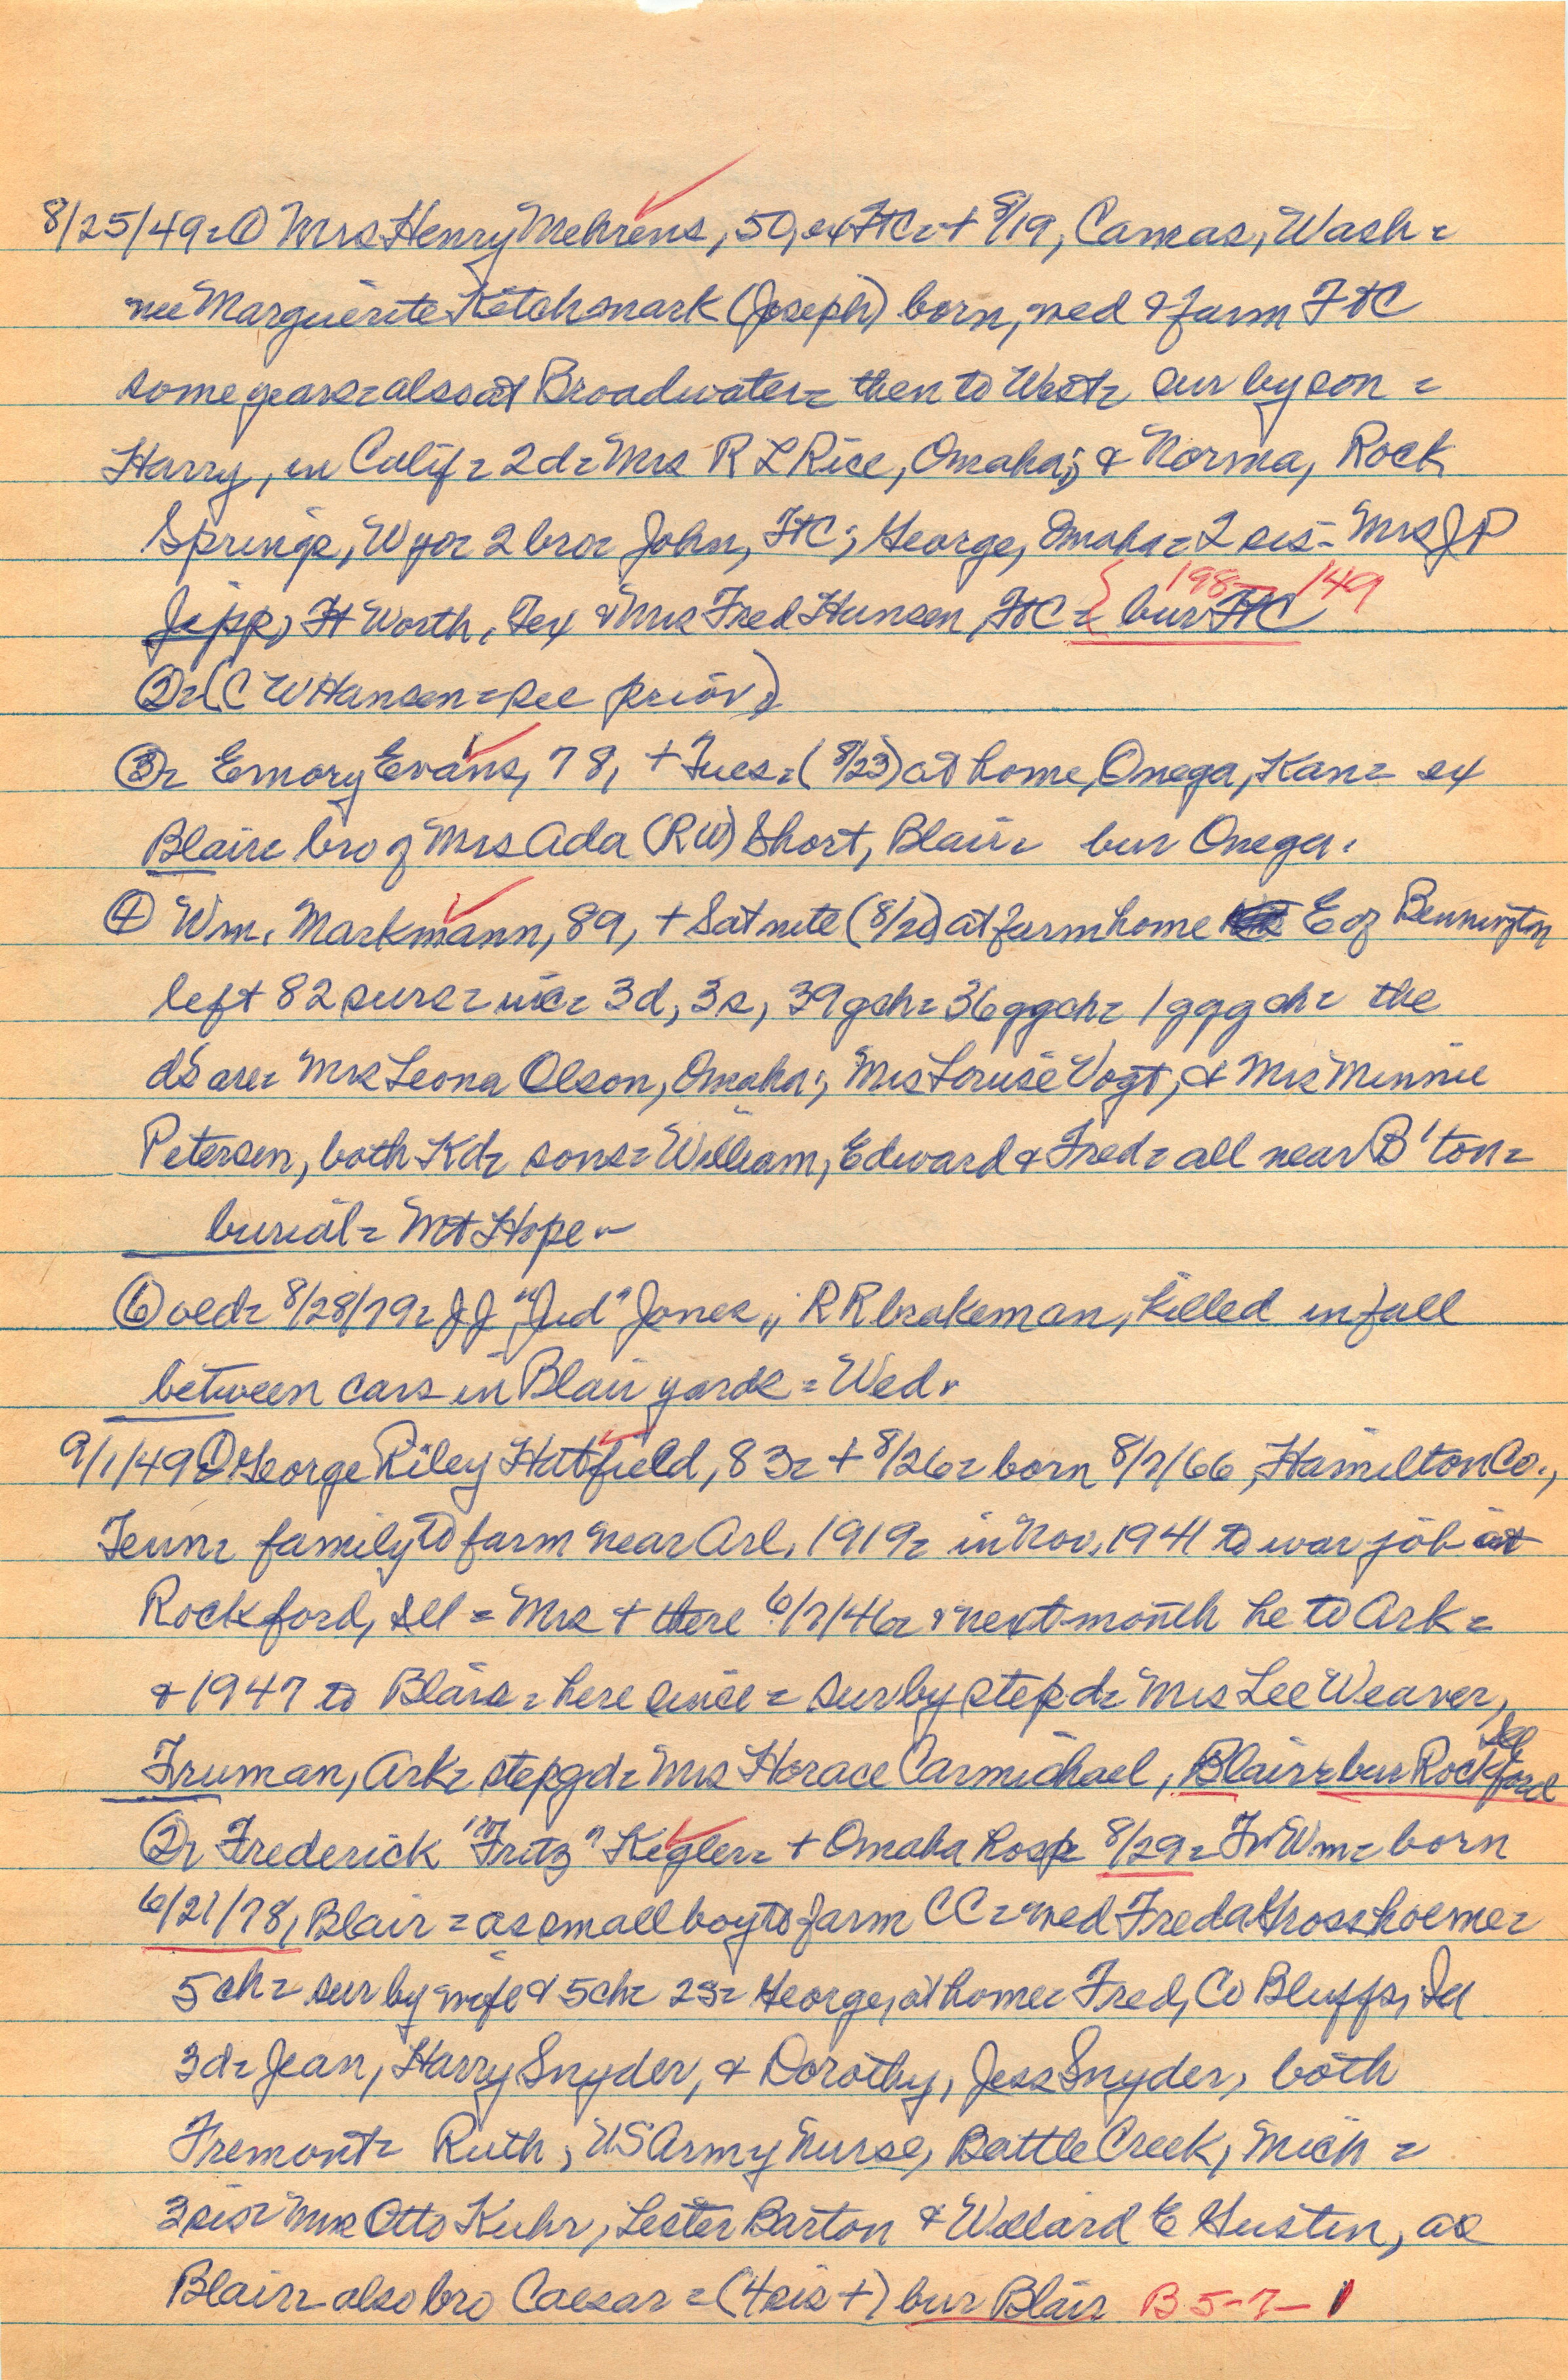 8/25/49= ① Mrs Henry Mehrens, 50, ex FtC= + 8/19, Camas, Wash=
nee Marguerite Ketchmark (Joseph) born, wed & farm FtC
some years= also at Broadwater= then to West= sur by son=
Harry, in Calif= 2d= Mrs R L Rice, Omaha; & Norma, Rock
Springs, Wyo= 2 bro= John, FtC; George, Omaha= 2 sis- Mrs J P
Jipp, Ft Worth, Tex & Mrs Fred Hansen, FtC= { bur FtC 198- 149
②= (C W Hansen= see prior)
③= Emory Evans, 78, + Tues= (8/23) at home, Onega, Kan= ex
Blair= bro of Mrs Ada (RW) Short, Blair= bur Onega.
④ Wm. Markmann, 89, + Sat nite (8/20) at farm home E of Bennington
left 82 surs= inc= 3d, 3s, 39 gch= 36 ggch= 1 gggch= the
ds are= Mrs Leona Olson, Omaha; Mrs Louise Vogt, & Mrs Minnie
Petersen, both Kd= sons= William, Edward & Fred= all near B'ton=
burial= Mt Hope=
⑥ old= 8/28/79= J J "Jud" Jones, RR brakeman, killed in fall
between cars in Blair yards= Wed.
9/1/49 ① George Riley Hatfield, 83= + 8/26= born 8/7/66, Hamilton Co.,
Tenn= family to farm near Arl, 1919= in Nov, 1941 to war job at
Rockford, Ill= Mrs + there 6/7/46= & next month he to Ark=
& 1947 to Blair= here since= sur by step d= Mrs Lee Weaver,
Truman, Ark= step gd= Mrs Horace Carmichael, Blair= bur Rockford Ill
②= Frederick "Fritz" Kegler= + Omaha hosp 8/29= Fr Wm= born
6/21/78, Blair= as small boy to farm CC= wed Freda Grosshoeme=
5 ch= sur by wife & 5 ch= 2s= George, at home= Fred, Co Bluffs, Ia
3d= Jean, Harry Snyder, & Dorothy, Jess Snyder, both
Fremont= Ruth, US Army Nurse, Battle Creek, Mich=
3 sis= Mrs Otto Kuhr, Lester Barton & Willard E Hustin, as
Blair= also bro Caesar= (4 sis +) bur Blair B 5-7-1